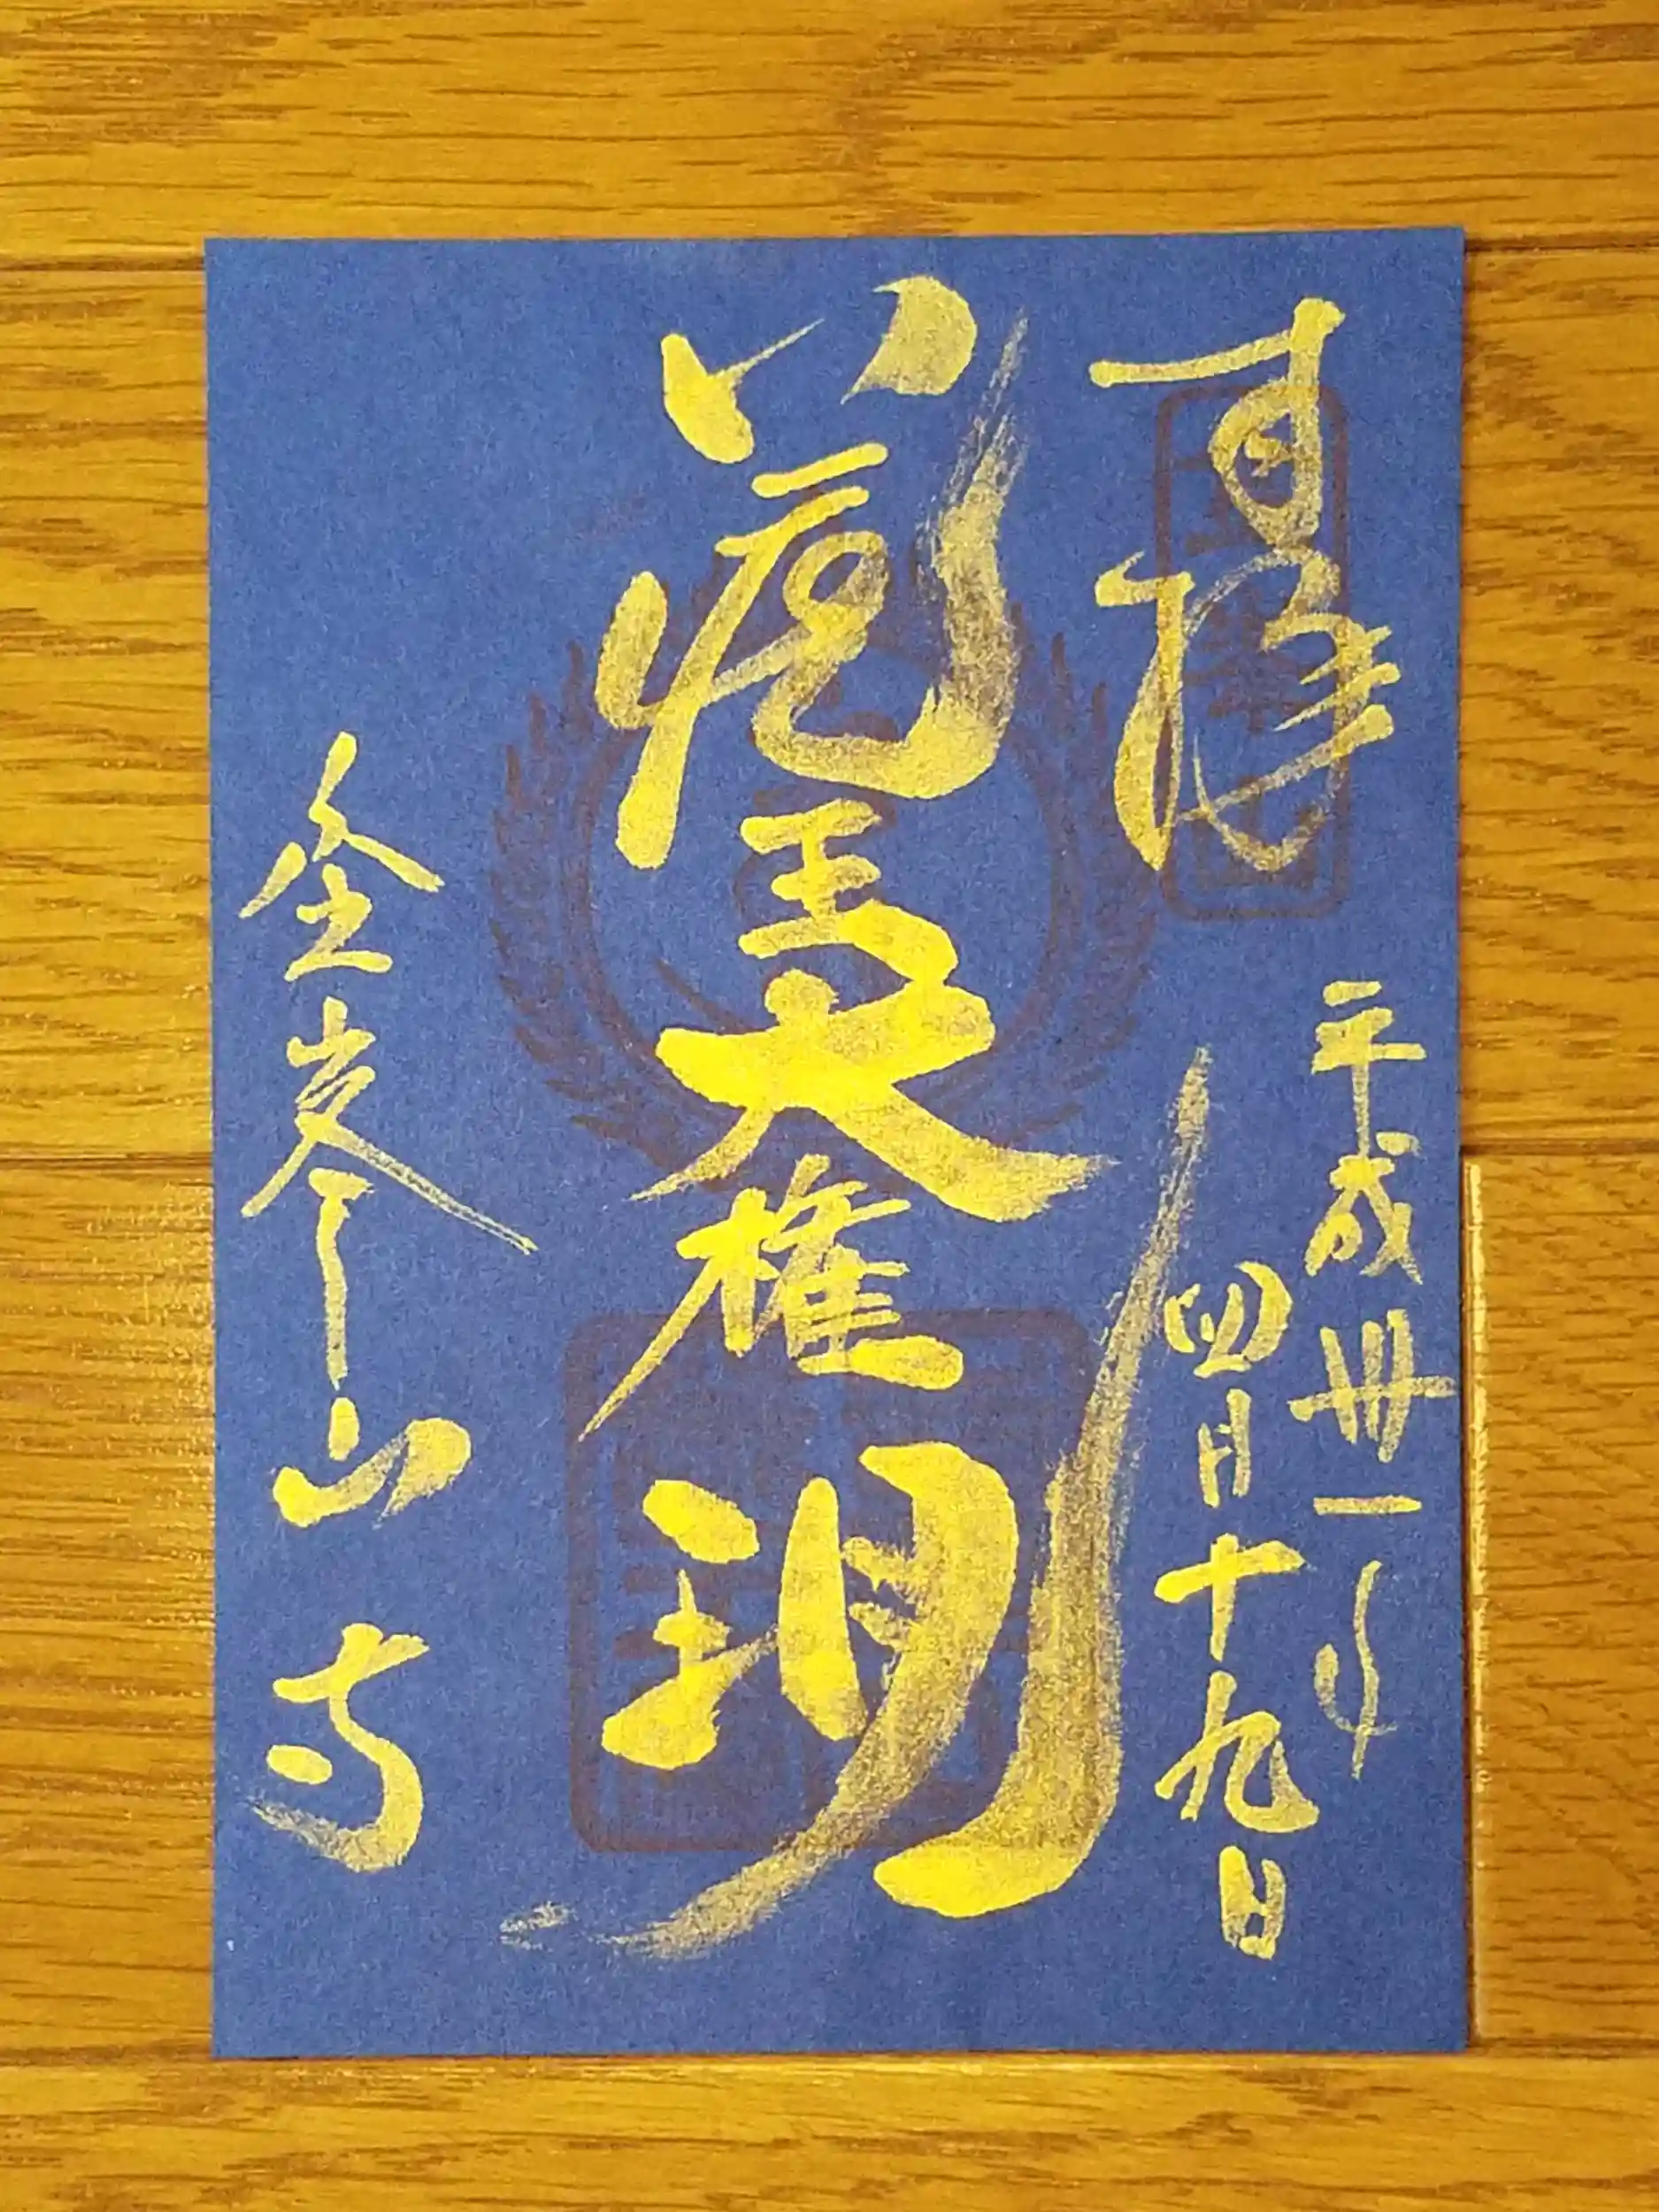 奉拝
平成卅一年
四月十九日
蔵王大権現
金峯山寺